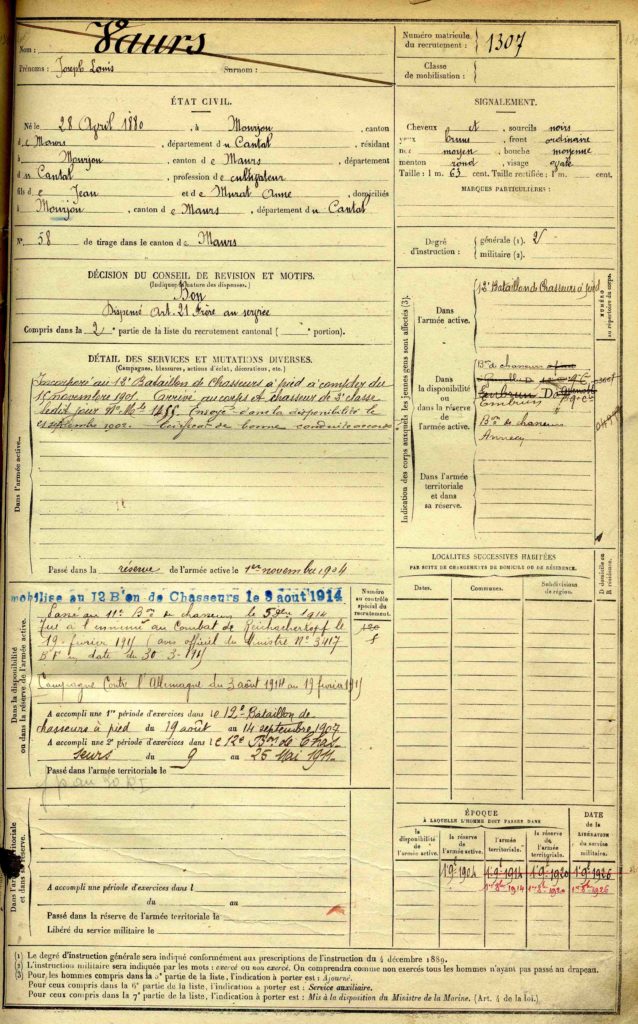 Nom : Vaurs
Prénoms : Joseph Louis Surnom :
Numéro matricule du recrutement : 1307
Classe de mobilisation :
ÉTAT CIVIL.
Né le 28 April 1880, à Mourjou, canton
de Maurs, département du Cantal, résidant
à Mourjou, canton de Maurs, département
du Cantal, profession de cultivateur
fils de Jean et de Murat Anne, domiciliés
à Mourjou, canton de Maurs, département du Cantal
N° 58 de tirage dans le canton de Maurs
SIGNALEMENT.
Cheveux et sourcils noirs
yeux bruns, front ordinaire
nez moyen, bouche moyenne
menton rond, visage ovale
Taille : 1 m. 63 cent. Taille rectifiée : 1 m. cent.
MARQUES PARTICULIÈRES :
Degré d'instruction : générale (1). 2
militaire (2).
DÉCISION DU CONSEIL DE REVISION ET MOTIFS.
(Indiquer la nature des dispenses.)
Bon
Dispensé Art. 21 Frère au service
Compris dans la 2e partie de la liste du recrutement cantonal ( portion).
DÉTAIL DES SERVICES ET MUTATIONS DIVERSES.
(Campagnes, blessures, actions d'éclat, décorations, etc.)
Dans l'armée active.
Incorporé au 12e Bataillon de Chasseurs à pied à compter du
novembre 1901. Arrivé au corps et chasseur de 2e classe
ledit jour. Envoyé dans la disponibilité le
septembre 1902. Certificat de bonne conduite accordé
Passé dans la réserve de l'armée active le 1er novembre 1904
Indication des corps auxquels les jeunes gens sont affectés (3).
Dans l'armée active.
12e Bataillon de Chasseurs à pied
NUMÉRO au répertoire du corps.
Dans la disponibilité ou dans la réserve de l'armée active.
Bon de chasseurs
Embrun
Embrun
Bon de chasseurs
Annecy
Dans l'armée territoriale et dans sa réserve.
LOCALITÉS SUCCESSIVES HABITÉES
PAR SUITE DE CHANGEMENTS DE DOMICILE OU DE RÉSIDENCE.
Dates. Communes. Subdivisions de région. D domicile ou R résidence.
Dans la disponibilité ou dans la réserve de l'armée active.
mobilisé au 12 B'on de Chasseurs le 3 août 1914
Numéro au contrôle spécial du recrutement.
Passé au 11e Bon de chasseurs le 1914
Tué à l'ennemi au Combat de Reichackerkopf le
19 février 1915 avis officiel du Ministre N° 3417
en date du 30-3-1915
Campagne Contre l'Allemagne du 3 août 1914 au 19 février 1915
A accompli une 1re période d'exercices dans le 12e Bataillon de
chasseurs à pied du 19 août au 14 septembre 1907
A accompli une 2e période d'exercices dans le 12e Bon de Chas-
seurs du 9 au 25 Mai 1911
Passé dans l'armée territoriale le
Dans l'armée territoriale et dans sa réserve.
A accompli une période d'exercices dans l
du au
Passé dans la réserve de l'armée territoriale le
Libéré du service militaire le
ÉPOQUE
À LAQUELLE L'HOMME DOIT PASSER DANS
DATE de la LIBÉRATION du service militaire.
la disponibilité de l'armée active. la réserve de l'armée active. l'armée territoriale. la réserve de l'armée territoriale.
1 9e 1904 1 9e 1914 1 9e 1920 1 9e 1926
1er 8bre 1914 1er 8bre 1920 1er 8bre 1926
(1) Le degré d'instruction générale sera indiqué conformément aux prescriptions de l'instruction du 4 décembre 1889.
(2) L'instruction militaire sera indiquée par les mots : exercé ou non exercé. On comprendra comme non exercés tous les hommes n'ayant pas passé au drapeau.
(3) Pour les hommes compris dans la 5e partie de la liste, l'indication à porter est : Ajourné.
Pour ceux compris dans la 6e partie de la liste, l'indication à porter est : Service auxiliaire.
Pour ceux compris dans la 7e partie de la liste, l'indication à porter est : Mis à la disposition du Ministre de la Marine. (Art. 4 de la loi.)